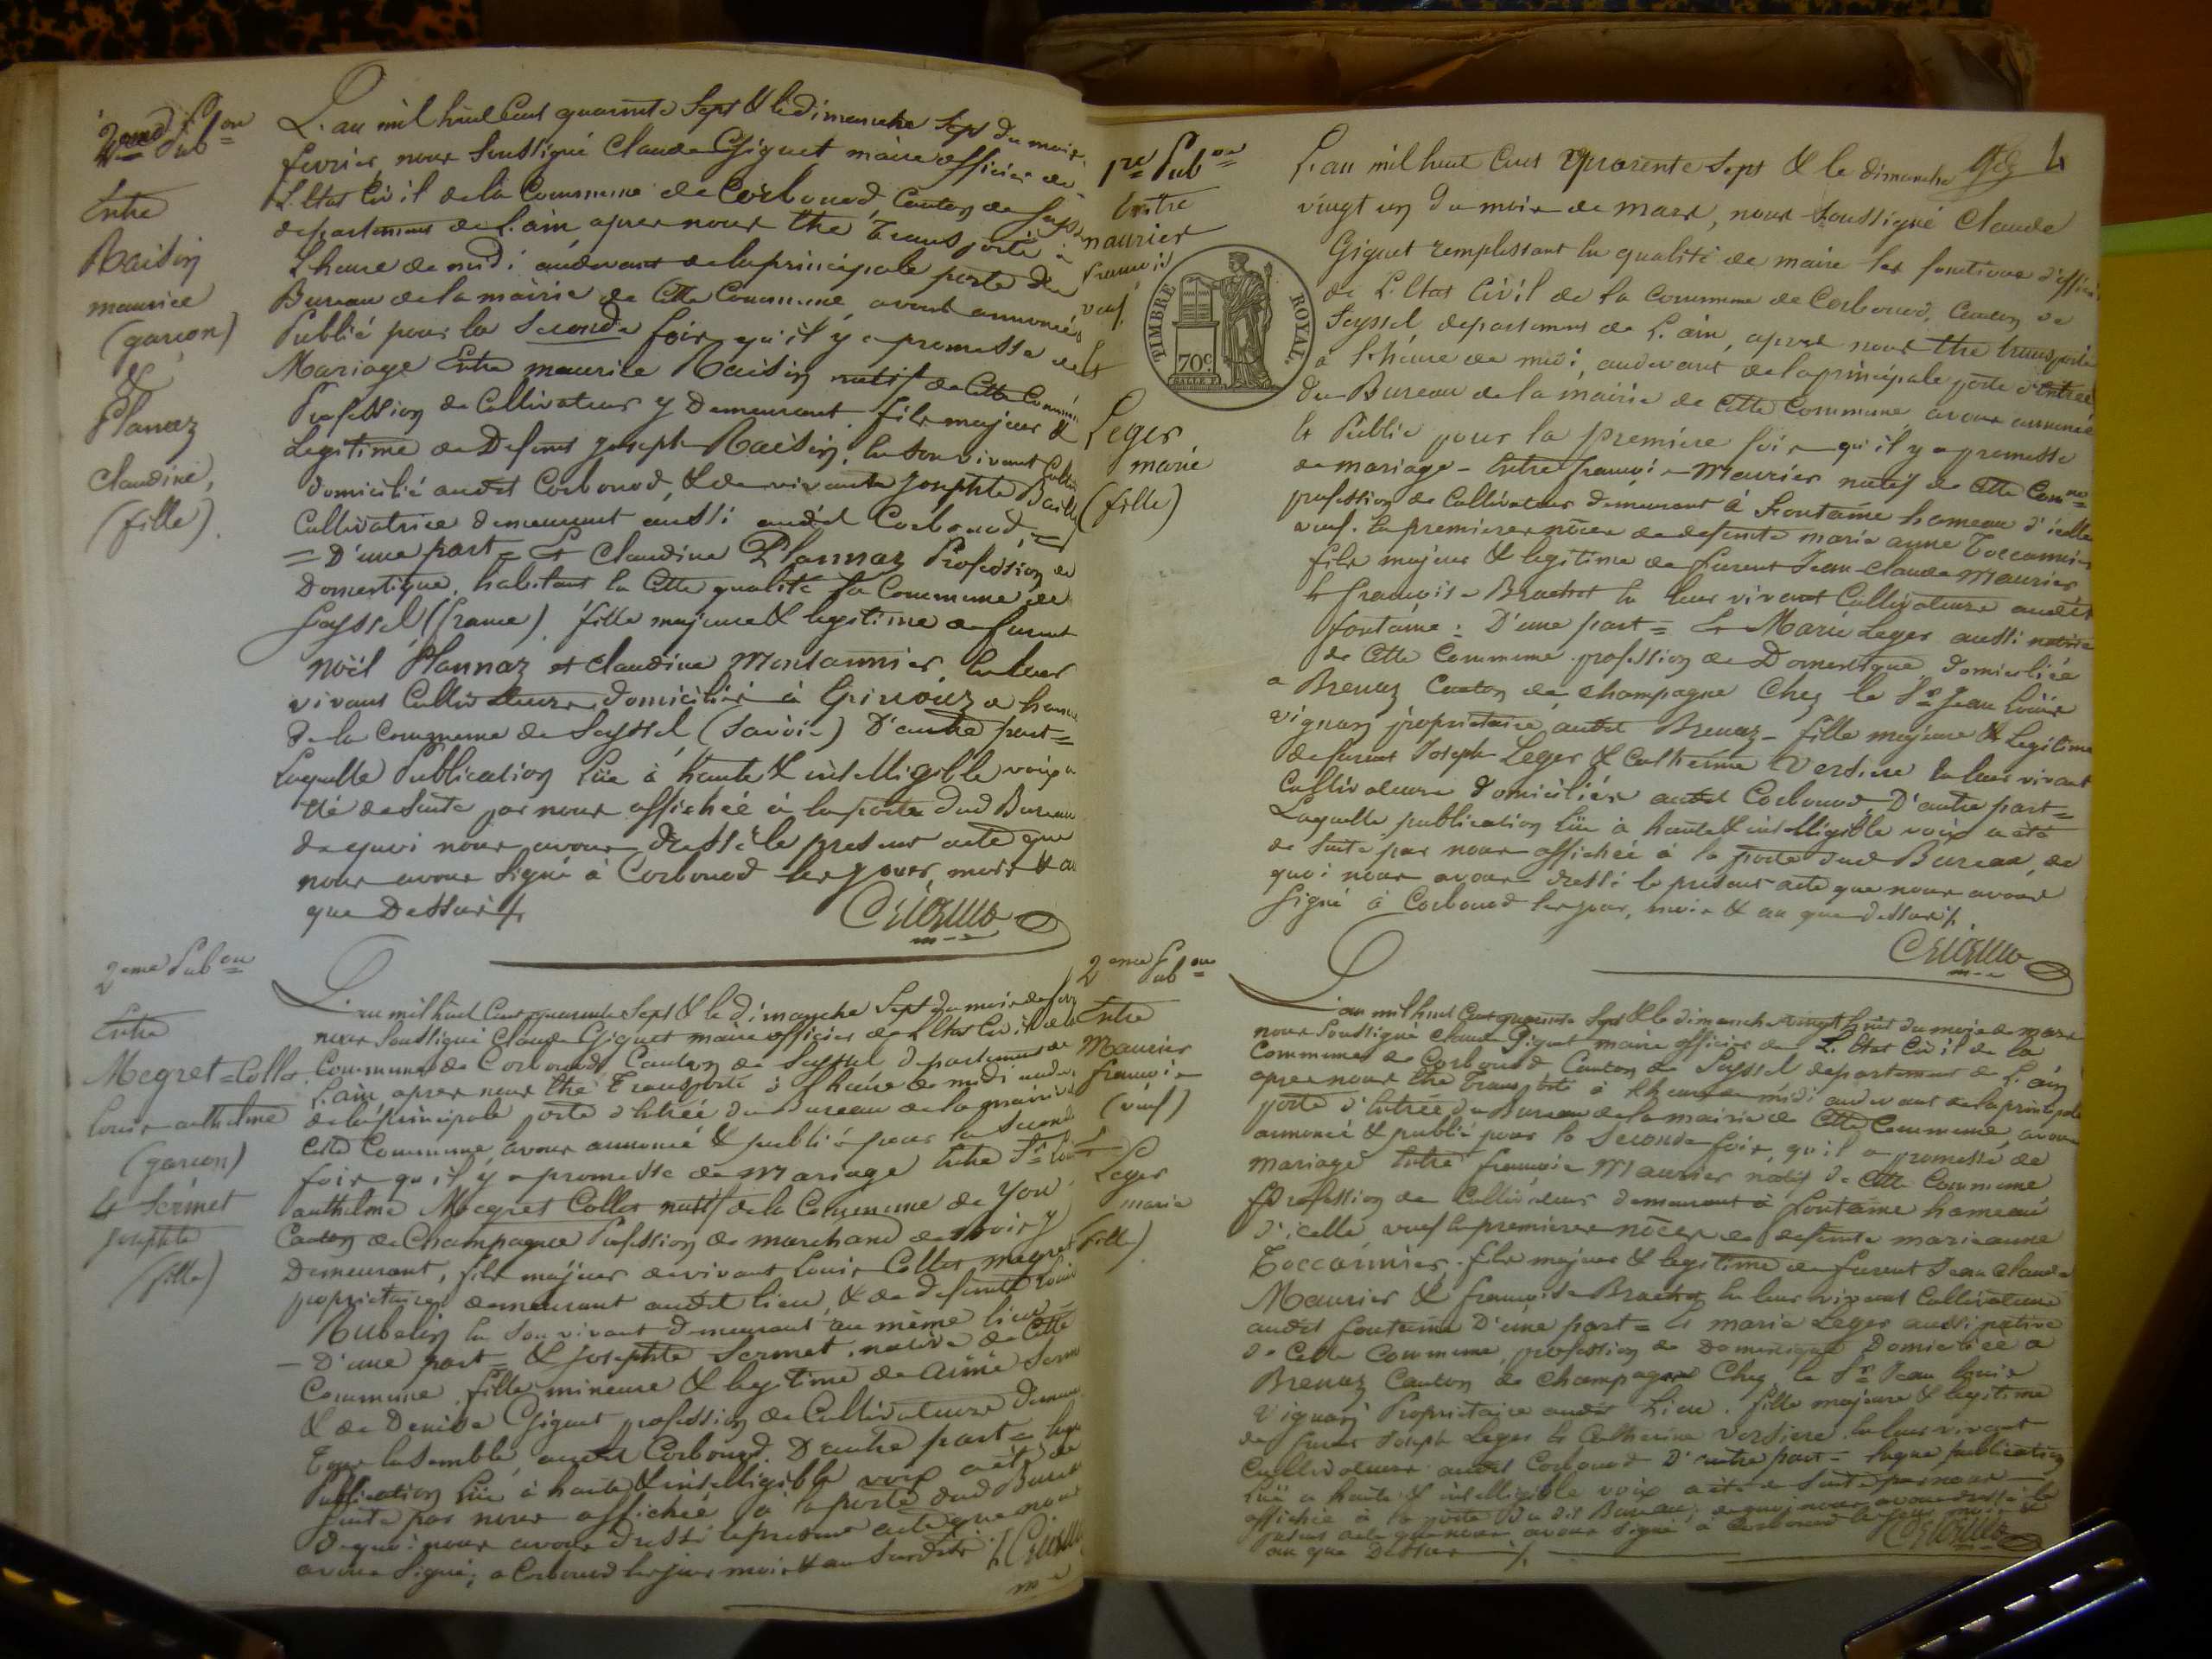 2eme Pubon
Entre
Raisin
maurice
(garcon)
&
Plannaz
claudine,
(fille).
L'an mil huit Cent quarante Sept & le dimanche Sept du mois
fevrier, nous Soussigné Claude Giguet maire officier de
L'Etat Civil de la Commune de Corbonod, Canton de Seyssel
departement de L'ain apres nous être transporté à
L'heure de midi audevant de la principale porte du
Bureau de la mairie de Cette Commune avons annoncé &
Publié pour la Seconde fois qu'il y a promesse de
Mariage Entre maurice Raisin natif de Cette Commune
Profession de Cultivateur y Demeurant, fils majeur &
Legitime de Defunt joseph Raisin, en son vivant
domicilié audit Corbonod, & de vivante josephte
Cultivatrice demeurant aussi audit Corbonod,
= D'une part = Et Claudine Plannaz Profession de
Domestique, habitant en Cette qualité la Commune de
Seyssel (france), fille majeure & legitime de furent
Noël Plannaz et claudine Montannier, en leur
vivant Cultivateurs domiciliés à
de la Commune de Seyssel (Savoie) D'autre part =
Laquelle Publication Lüe à haute & intelligible voix a
été de Suite par nous affichée à la porte dud Bureau
de quoi nous avons dressé le present acte que
nous avons Signé à Corbonod les jour, mois & an
que Dessus ./.
2eme Pubon
Entre
Megret=Collet
Louis anthelme
(garcon)
Et Sermet
josephte
(fille)
L'an mil huit Cent quarante Sept & le dimanche Sept du mois de
nous Soussigné Claude Giguet maire officier de L'Etat Civil de la
Commune de Corbonod, Canton de Seyssel departement de
L'ain, apres nous être Transporté à L'heure de midi
de la principale porte d'Entrée du Bureau de la mairie de
Cette Commune, avons annoncé & publié pour la Seconde
fois qu'il y a promesse de Mariage Entre Sr Louis
anthelme Megret Collet natif de la Commune de
Canton de Champagne Profession de marchand de y
Demeurant, fils majeur de vivant Louis Collet megret
proprietaire, demeurant audit lieu, & de defunte
en Son vivant demeurant au même lieu
= D'une part = & josephte Sermet, native de Cette
Commune, fille mineure & legitime de aimé
& de Denise Giguet profession de Cultivateurs
Tous Ensemble audit Corbonod. D'autre part =
Publication Lüe à haute & intelligible voix a été de
Suite par nous affichée à la porte dud Bureau
De quoi nous avons dressé le present acte que nous
avons Signé, a Corbonod les jour mois & an Susdits ./.
1re Pubon
Entre
maurier
francois
veuf,
Et
Leger
marie
(fille)
TIMBRE ROYAL.
70c.
4
L'an mil huit Cent quarente Sept & le dimanche
vingt un du mois de mars, nous Soussigné Claude
Giguet remplissant en qualité de maire les fonctions d'officier
de L'Etat Civil de la Commune de Corbonod, Canton de
Seyssel, departement de L'ain, après nous être transporté
à L'heure de midi, audevant de la principale porte d'Entrée
du Bureau de la mairie de Cette Commune avons annoncé
et Publié pour la premiere fois qu'il y a promesse
de mariage - Entre françois Maurier natif de Cette Comne
profession de Cultivateur demeurant à Fontaine hameau d'icelle
veuf En premieres nôces de defunte marie anne Toccannier
fils majeur & legitime de furent Jean-claude Maurier,
Et francoise Brachet en leur vivant Cultivateurs audit
fontaine: D'une part = Et Marie Leger aussi native
de Cette Commune profession de Domestique domiciliée
a Brenaz Canton de champagne Chez le Sr Jean Louis
vignan proprietaire audit Brenaz - fille majeure & Legitime
de furent Joseph Leger & Catherine Versiere En leur vivant
Cultivateurs domiciliés audit Corbonod, D'autre part =
Laquelle publication Lüe à haute & intelligible voix a été
de Suite par nous affichée à la porte dud Bureau, de
quoi nous avons dressé le present acte que nous avons
Signé à Corbonod les jour, mois & an que dessus ./.
2eme Pubon
Entre
Maurier
françois
(veuf)
Et
Leger
marie
fille)
L'an mil huit Cent quarante Sept & le dimanche vingt huit du mois de mars
nous Soussigné claude Giguet maire officier de L'Etat Civil de la
Commune de Corbonod Canton de Seyssel departement de L'ain
apres nous être Transporté à L'heure de midi audevant de la principale
porte d'Entrée du Bureau de la mairie de Cette Commune, avons
annoncé & publié pour la Seconde fois, qu'il a promesse de
Mariage Entre françois Maurier natif de Cette Commune
Profession de Cultivateur demeurant à fontaine hameau
d'icelle veuf En premieres nôces de defunte marieanne
Toccannier, fils majeur & legitime de furent Jean Claude
Maurier & francoise Brachet En leur vivant Cultivateurs
audit fontaine D'une part = Et marie Leger aussi native
de Cette Commune, profession de Domestique Domiciliée a
Brenaz Canton de Champagne Chez le Sr Jean Louis
Vignan Proprietaire audit Lieu. fille majeure & legitime
de furent Joseph Leger Et Catherine Versiere En leur vivant
Cultivateurs audit Corbonod D'autre part = Laque publication
Lüe a haute & intelligible voix a été de Suite par nous
affichée à la porte Du dit Bureau, de quoi nous avons dressé le
present acte que nous avons Signé à Corbonod les jour mois &
an que Dessus ./.